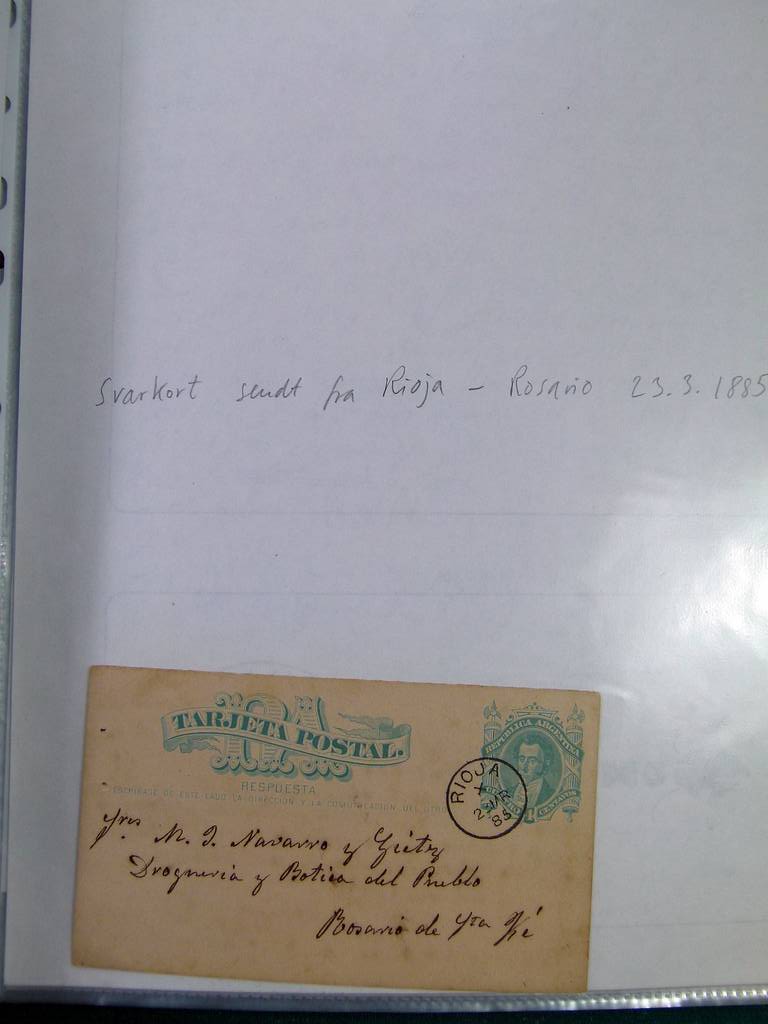 Svarkort sendt fra Rioja - Rosario 23.3.1885
RA
TARJETA POSTAL.
RESPUESTA
ESCRIBASE DE ESTE LADO LA DIRECCION Y LA COMUNICACION DEL OTRO
REPUBLICA ARGENTINA
CENTAVOS
RIOJA
MR
85
Sres M. J. Navarro y
Drogueria y Botica del Pueblo
Rosario de Sta Fé